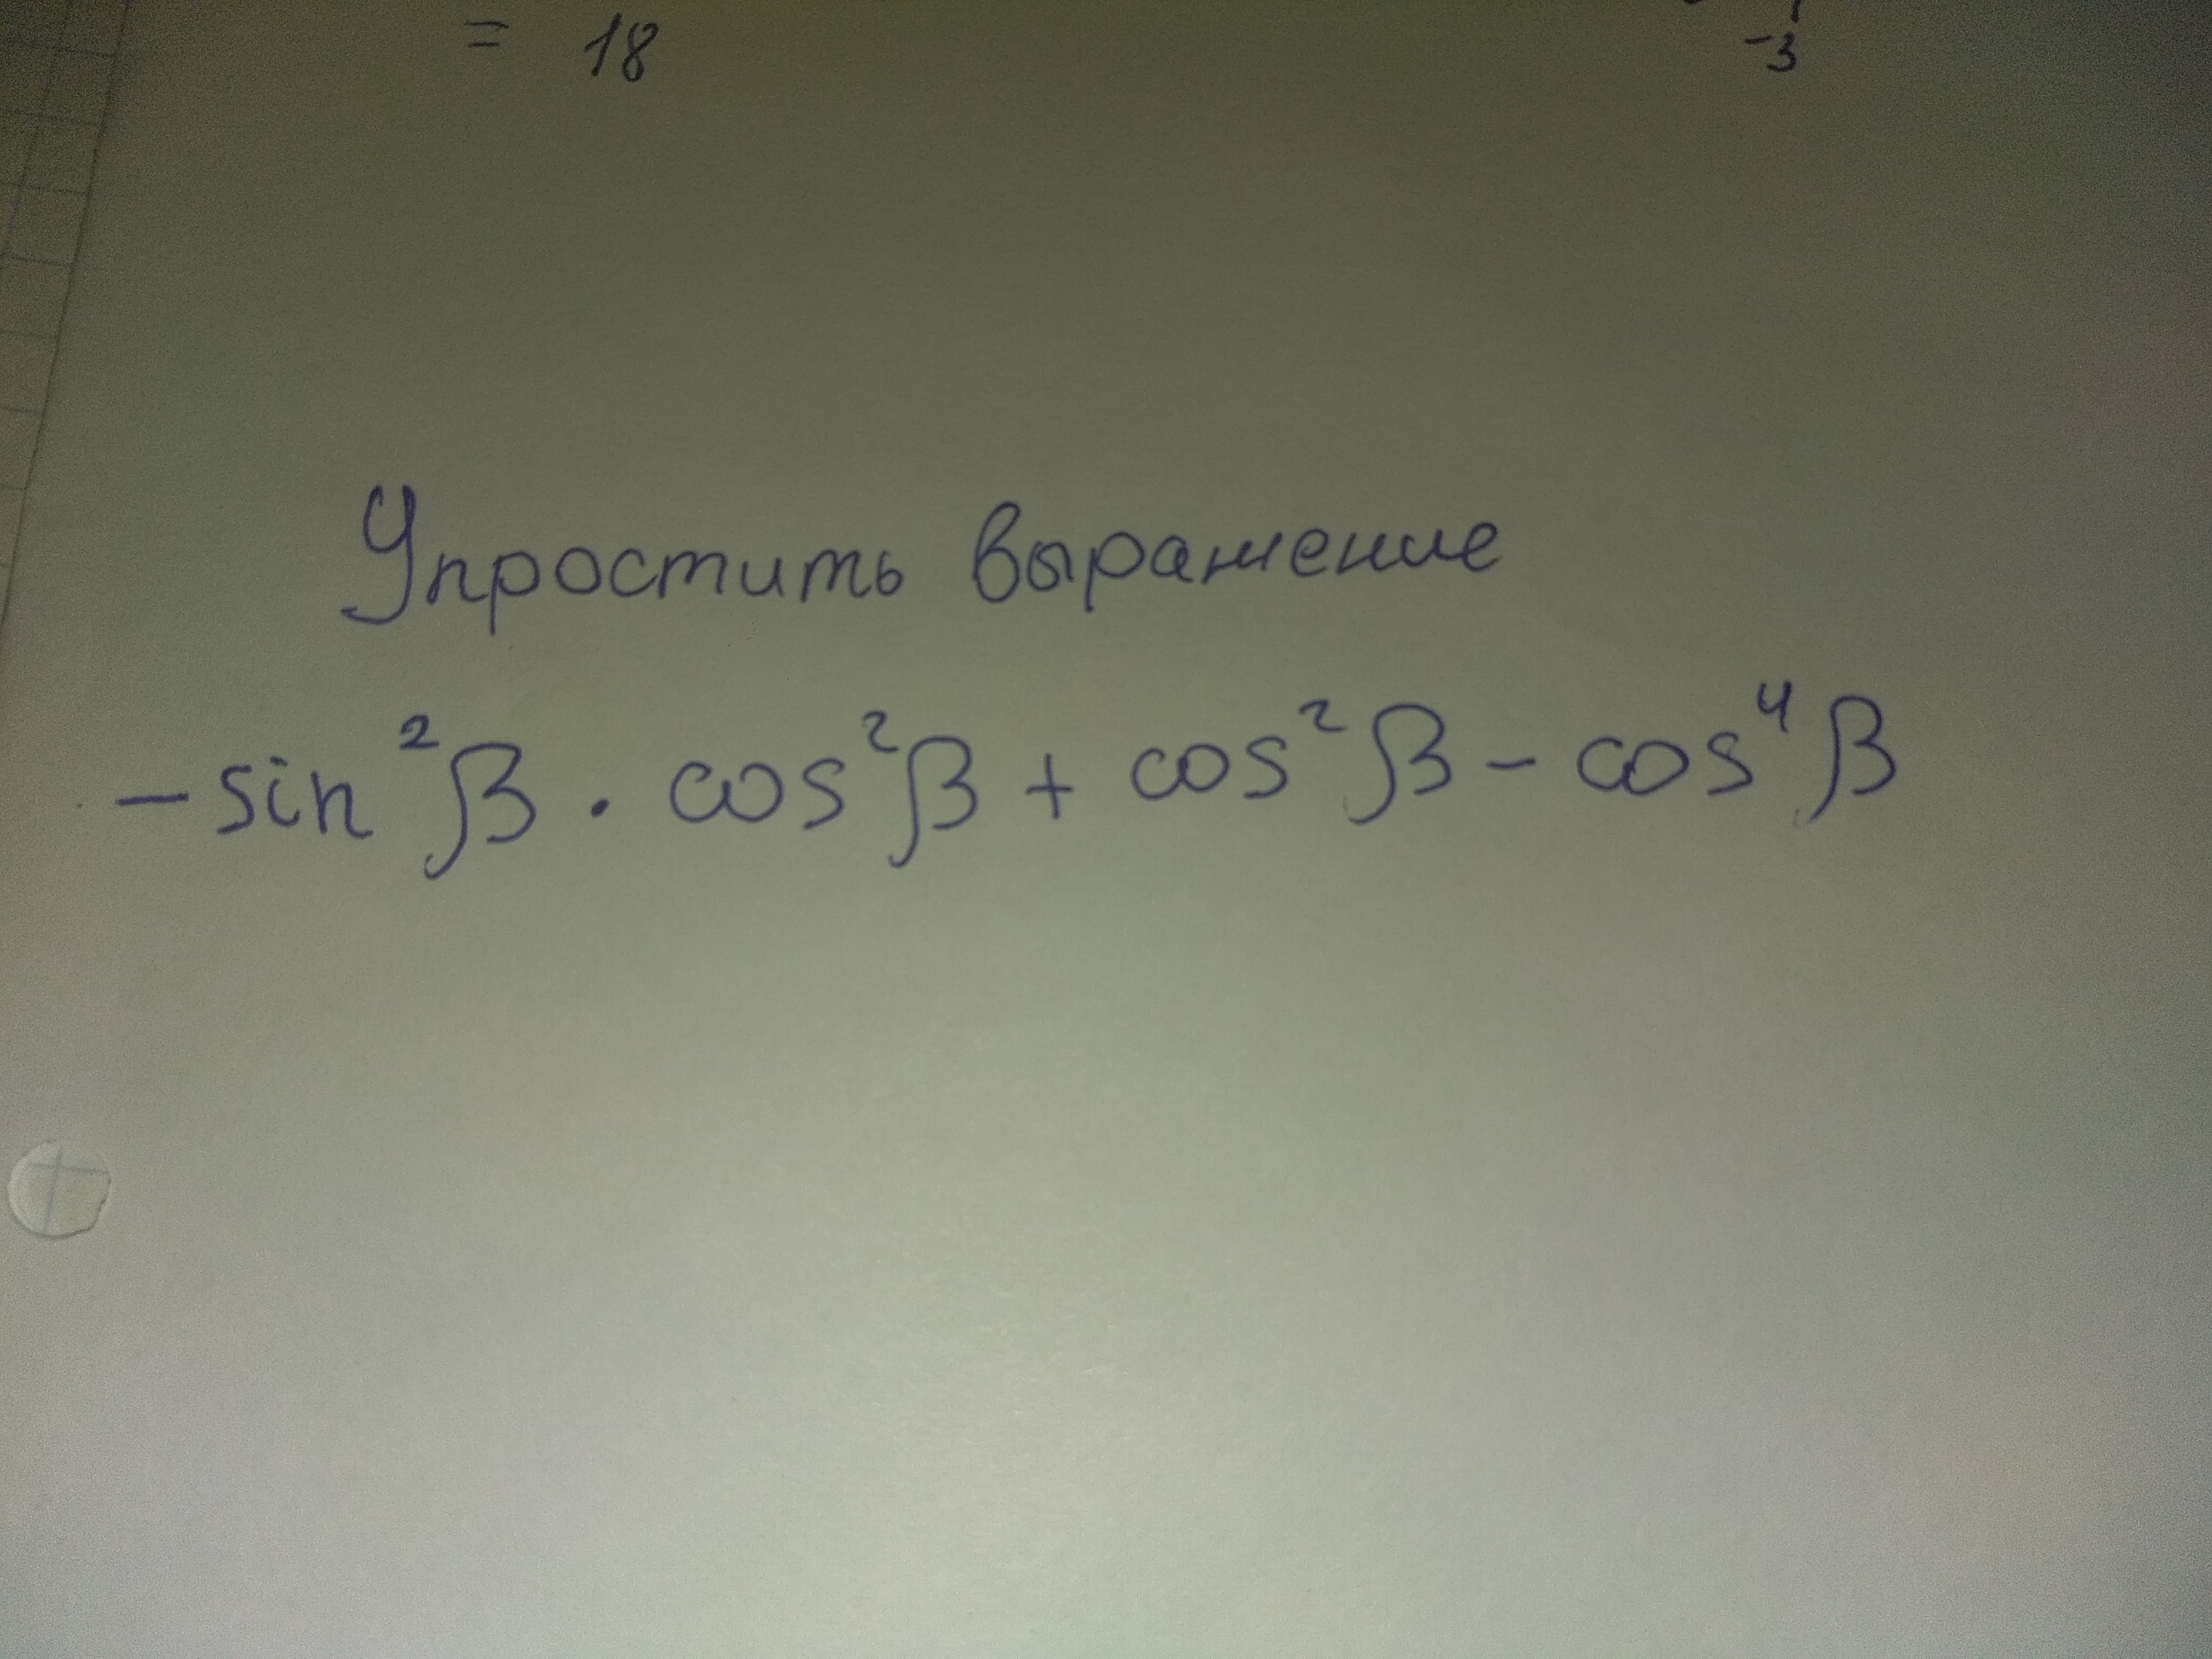 = 18
-3
Упростить выражение
- sin²β · cos²β + cos²β - cos⁴β